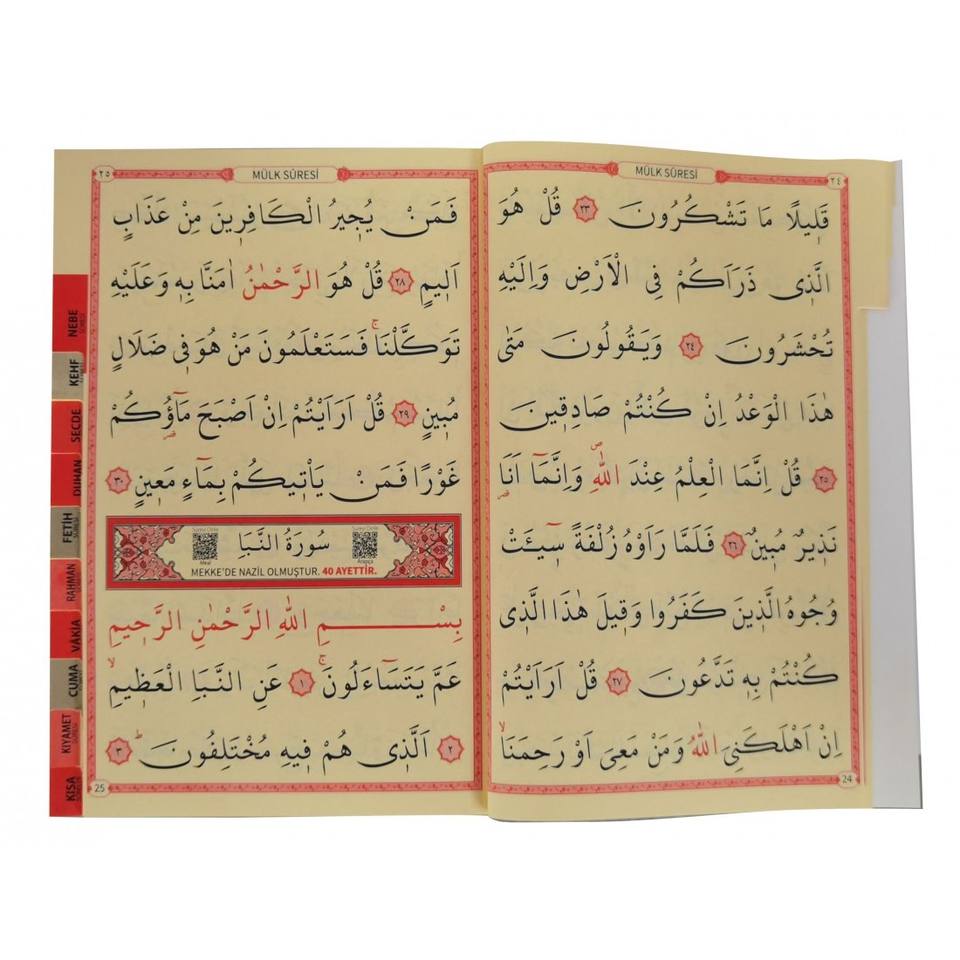 ٢٤
MÜLK SÛRESİ
قَلٖيلًا مَا تَشْكُرُونَ ﴿٢٣﴾ قُلْ هُوَ
الَّذٖى ذَرَاَكُمْ فِى الْاَرْضِ وَاِلَيْهِ
تُحْشَرُونَ ﴿٢٤﴾ وَيَقُولُونَ مَتٰى
هٰذَا الْوَعْدُ اِنْ كُنْتُمْ صَادِقٖينَ
﴿٢٥﴾ قُلْ اِنَّمَا الْعِلْمُ عِنْدَ اللّٰهِ وَاِنَّمَٓا اَنَا
نَذٖيرٌ مُبٖينٌ ﴿٢٦﴾ فَلَمَّا رَاَوْهُ زُلْفَةً سٖٓيـَٔتْ
وُجُوهُ الَّذٖينَ كَفَرُوا وَقٖيلَ هٰذَا الَّذٖى
كُنْتُمْ بِهٖ تَدَّعُونَ ﴿٢٧﴾ قُلْ اَرَاَيْتُمْ
اِنْ اَهْلَكَنِىَ اللّٰهُ وَمَنْ مَعِىَ اَوْ رَحِمَنَاۙ
24
٢٥
MÜLK SÛRESİ
فَمَنْ يُجٖيرُ الْكَافِرٖينَ مِنْ عَذَابٍ
اَلٖيمٍ ﴿٢٨﴾ قُلْ هُوَ الرَّحْمٰنُ اٰمَنَّا بِهٖ وَعَلَيْهِ
تَوَكَّلْنَاۚ فَسَتَعْلَمُونَ مَنْ هُوَ فٖى ضَلَالٍ
مُبٖينٍ ﴿٢٩﴾ قُلْ اَرَاَيْتُمْ اِنْ اَصْبَحَ مَٓاؤُكُمْ
غَوْرًا فَمَنْ يَاْتٖيكُمْ بِمَٓاءٍ مَعٖينٍ ﴿٣٠﴾
سُورَةُ النَّبَأِ
MEKKE'DE NAZİL OLMUŞTUR. 40 AYETTİR.
بِسْمِ اللّٰهِ الرَّحْمٰنِ الرَّحٖيمِ
عَمَّ يَتَسَٓاءَلُونَۚ ﴿١﴾ عَنِ النَّبَأِ الْعَظٖيمِۙ
﴿٢﴾ اَلَّذٖى هُمْ فٖيهِ مُخْتَلِفُونَۜ ﴿٣﴾
25
NEBE
KEHF
SECDE
DUHAN
FETİH
RAHMAN
VÂKIA
CUMA
KIYAMET
KISA